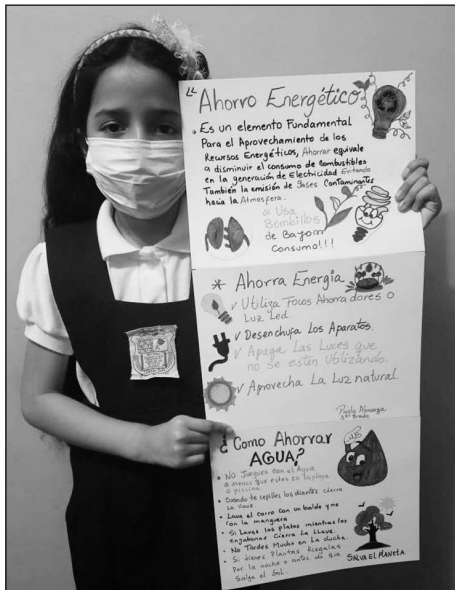 "Ahorro Energético
. Es un elemento Fundamental
Para el Aprovechamiento de los
Recursos Energéticos, Ahorrar equivale
a disminuir el consumo de Combustibles
en la generación de Electricidad Evitando
También la emisión de Gases Contaminantes
hacia la Atmosfera.
Usa
Bombillos
de Bajo
Consumo!!!
* Ahorra Energia
✓ Utiliza Focos Ahorradores o
Luz Led.
✓ Desenchufa Los Aparatos.
✓ Apaga Las Luces que
no se esten Utilizando.
✓ Aprovecha La Luz natural.
Paola
3er Grado
¿Como Ahorrar
AGUA?
• No Juegues con el Agua
a menos que estes en la playa
o piscina.
• Cuando te cepilles los dientes cierra
la llave
• Lava el carro con un balde y no
con la manguera
• Si Lavas los platos mientras los
enjabonas Cierra La Llave.
• No Tardes Mucho en La ducha.
• Si tienes Plantas Riegalas
Por la noche o antes de que
Salga el Sol.
SALVA EL PLANETA.